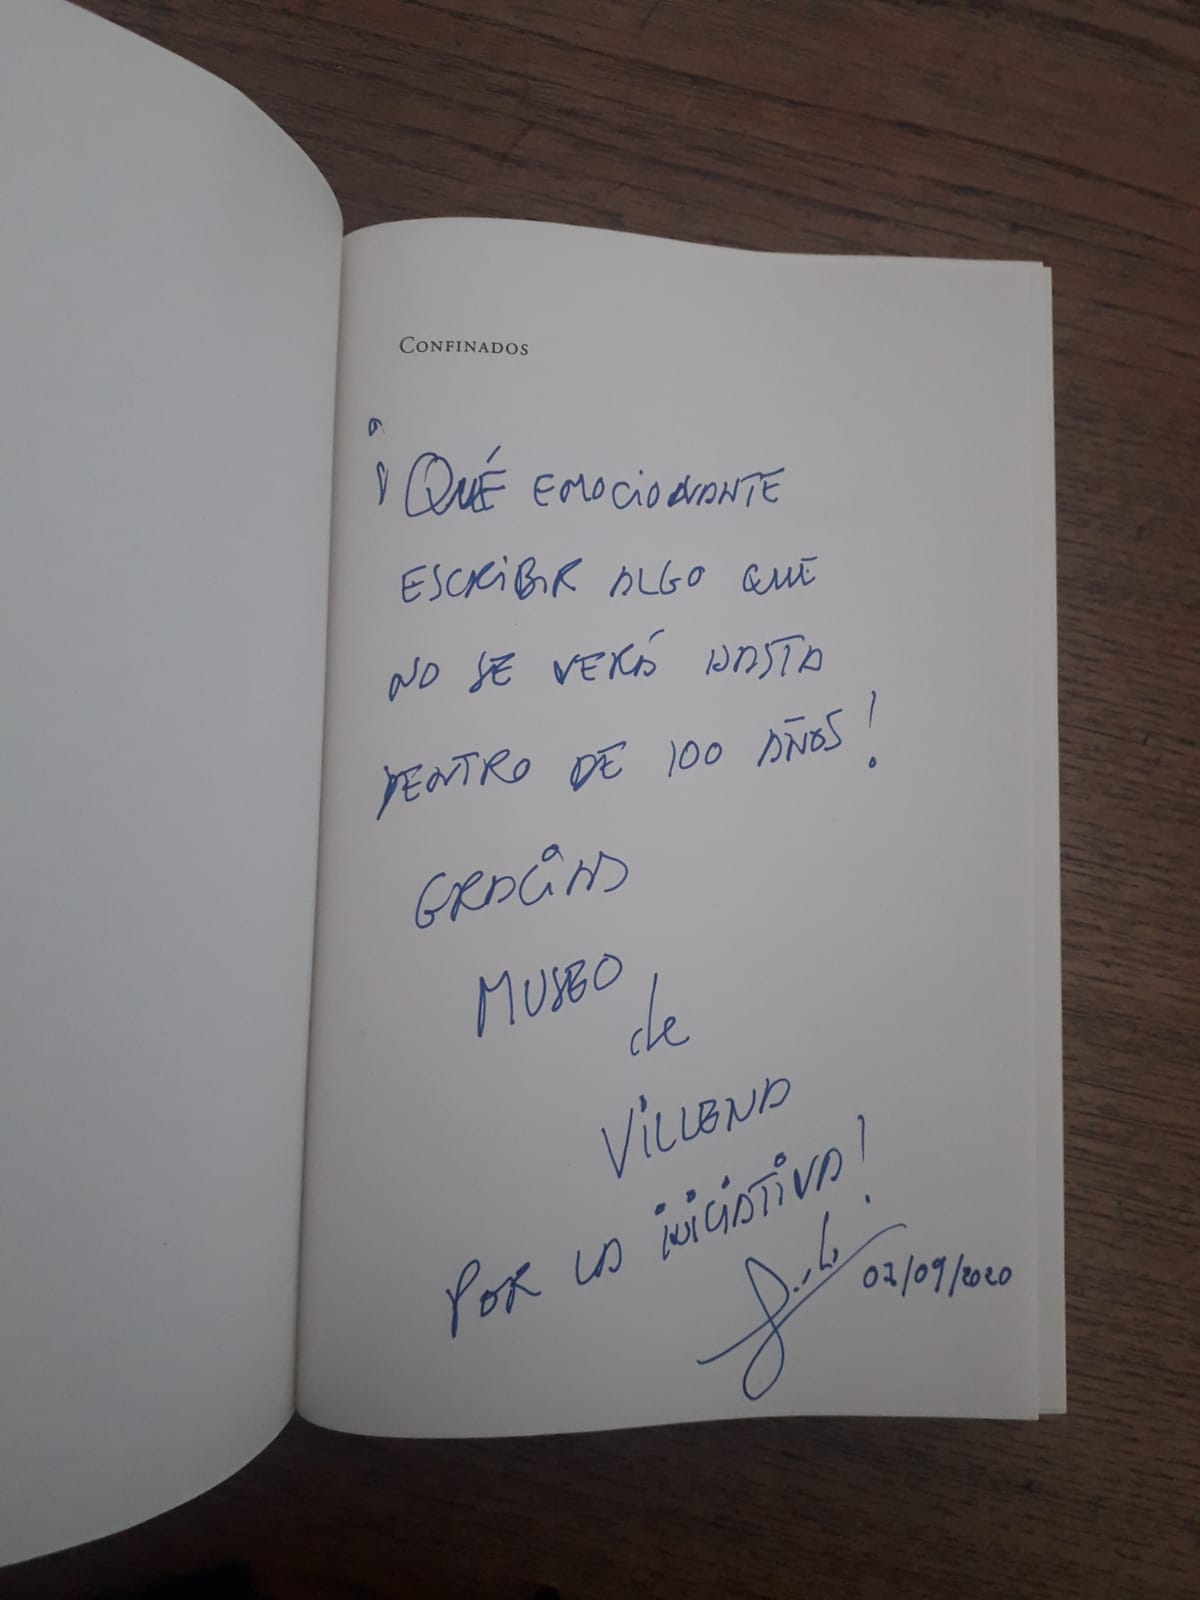 CONFINADOS
¡QUÉ EMOCIONANTE
ESCRIBIR ALGO QUE
NO SE VERÁ HASTA
DENTRO DE 100 AÑOS!
GRACIAS
MUSEO
de
VILLENA
POR LA INICIATIVA!
07/09/2020